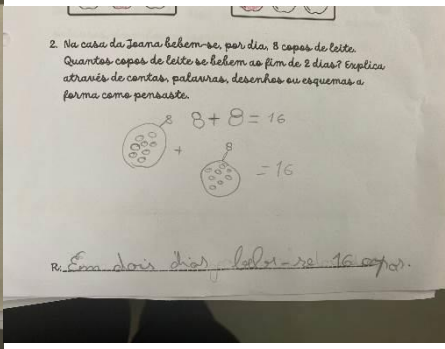 2. Na casa da Joana bebem-se, por dia, 8 copos de leite.
Quantos copos de leite se bebem ao fim de 2 dias? Explica
através de contas, palavras, desenhos ou esquemas a
forma como pensaste.
8 8 + 8 = 16
+ 8
= 16
R: Em dois dias bebe-se 16 copos.